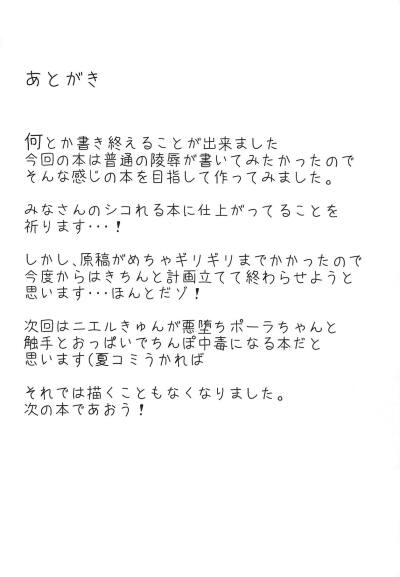 あとがき
何とか書き終えることが出来ました
今回の本は普通の陵辱が書いてみたかったので
そんな感じの本を目指して作ってみました。
みなさんのシコれる本に仕上がってることを
祈ります・・・！
しかし、原稿がめちゃギリギリまでかかったので
今度からはきちんと計画立てて終わらせようと
思います・・・ほんとだゾ！
次回はニエルきゅんが悪堕ちポーラちゃんと
触手とおっぱいでちんぽ中毒になる本だと
思います(夏コミうかれば
それでは描くこともなくなりました。
次の本であおう！